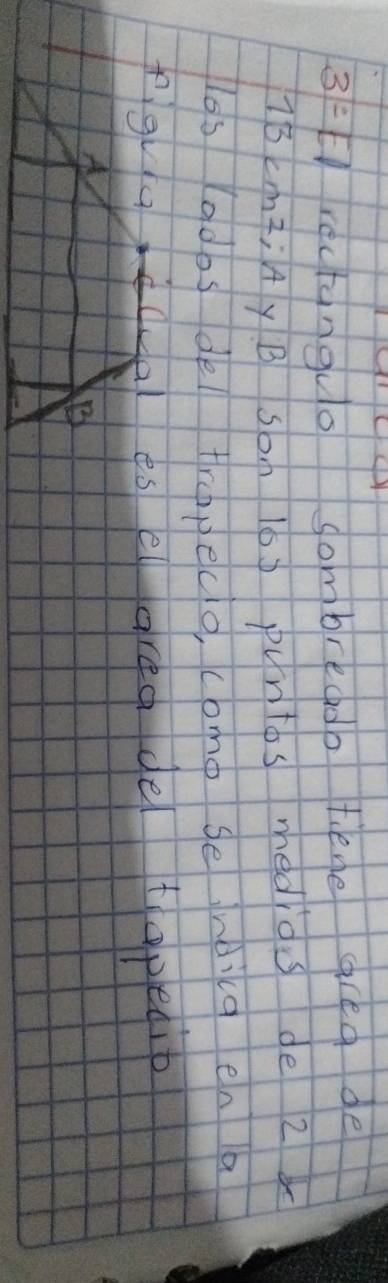 3= El rectangulo sombreado tiene area de
13 cm2; A y B son los puntos medios de 2
los lados del trapecio, como se indica en la
figura ¿Cual es el area del trapecio
A
B